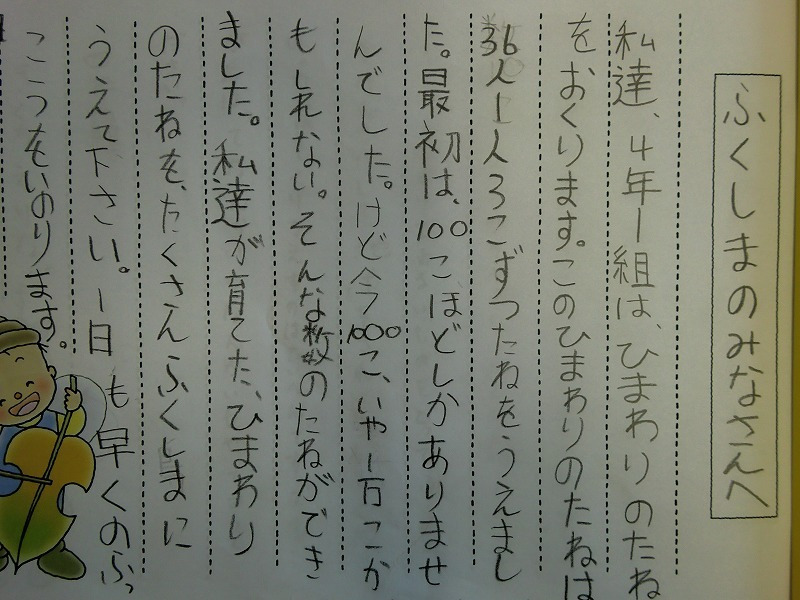 ふくしまのみなさんへ
私達、4年1組は、ひまわりのたね
をおくります。このひまわりのたねは
36人1人3こずつたねをうえまし
た。最初は、100こほどしかありませ
んでした。けど今1000こ、いや1万こか
もしれない。そんな数のたねができ
ました。私達が育てた、ひまわり
のたねを、たくさんふくしまに
うえて下さい。1日も早くのふっ
こうをいのります。